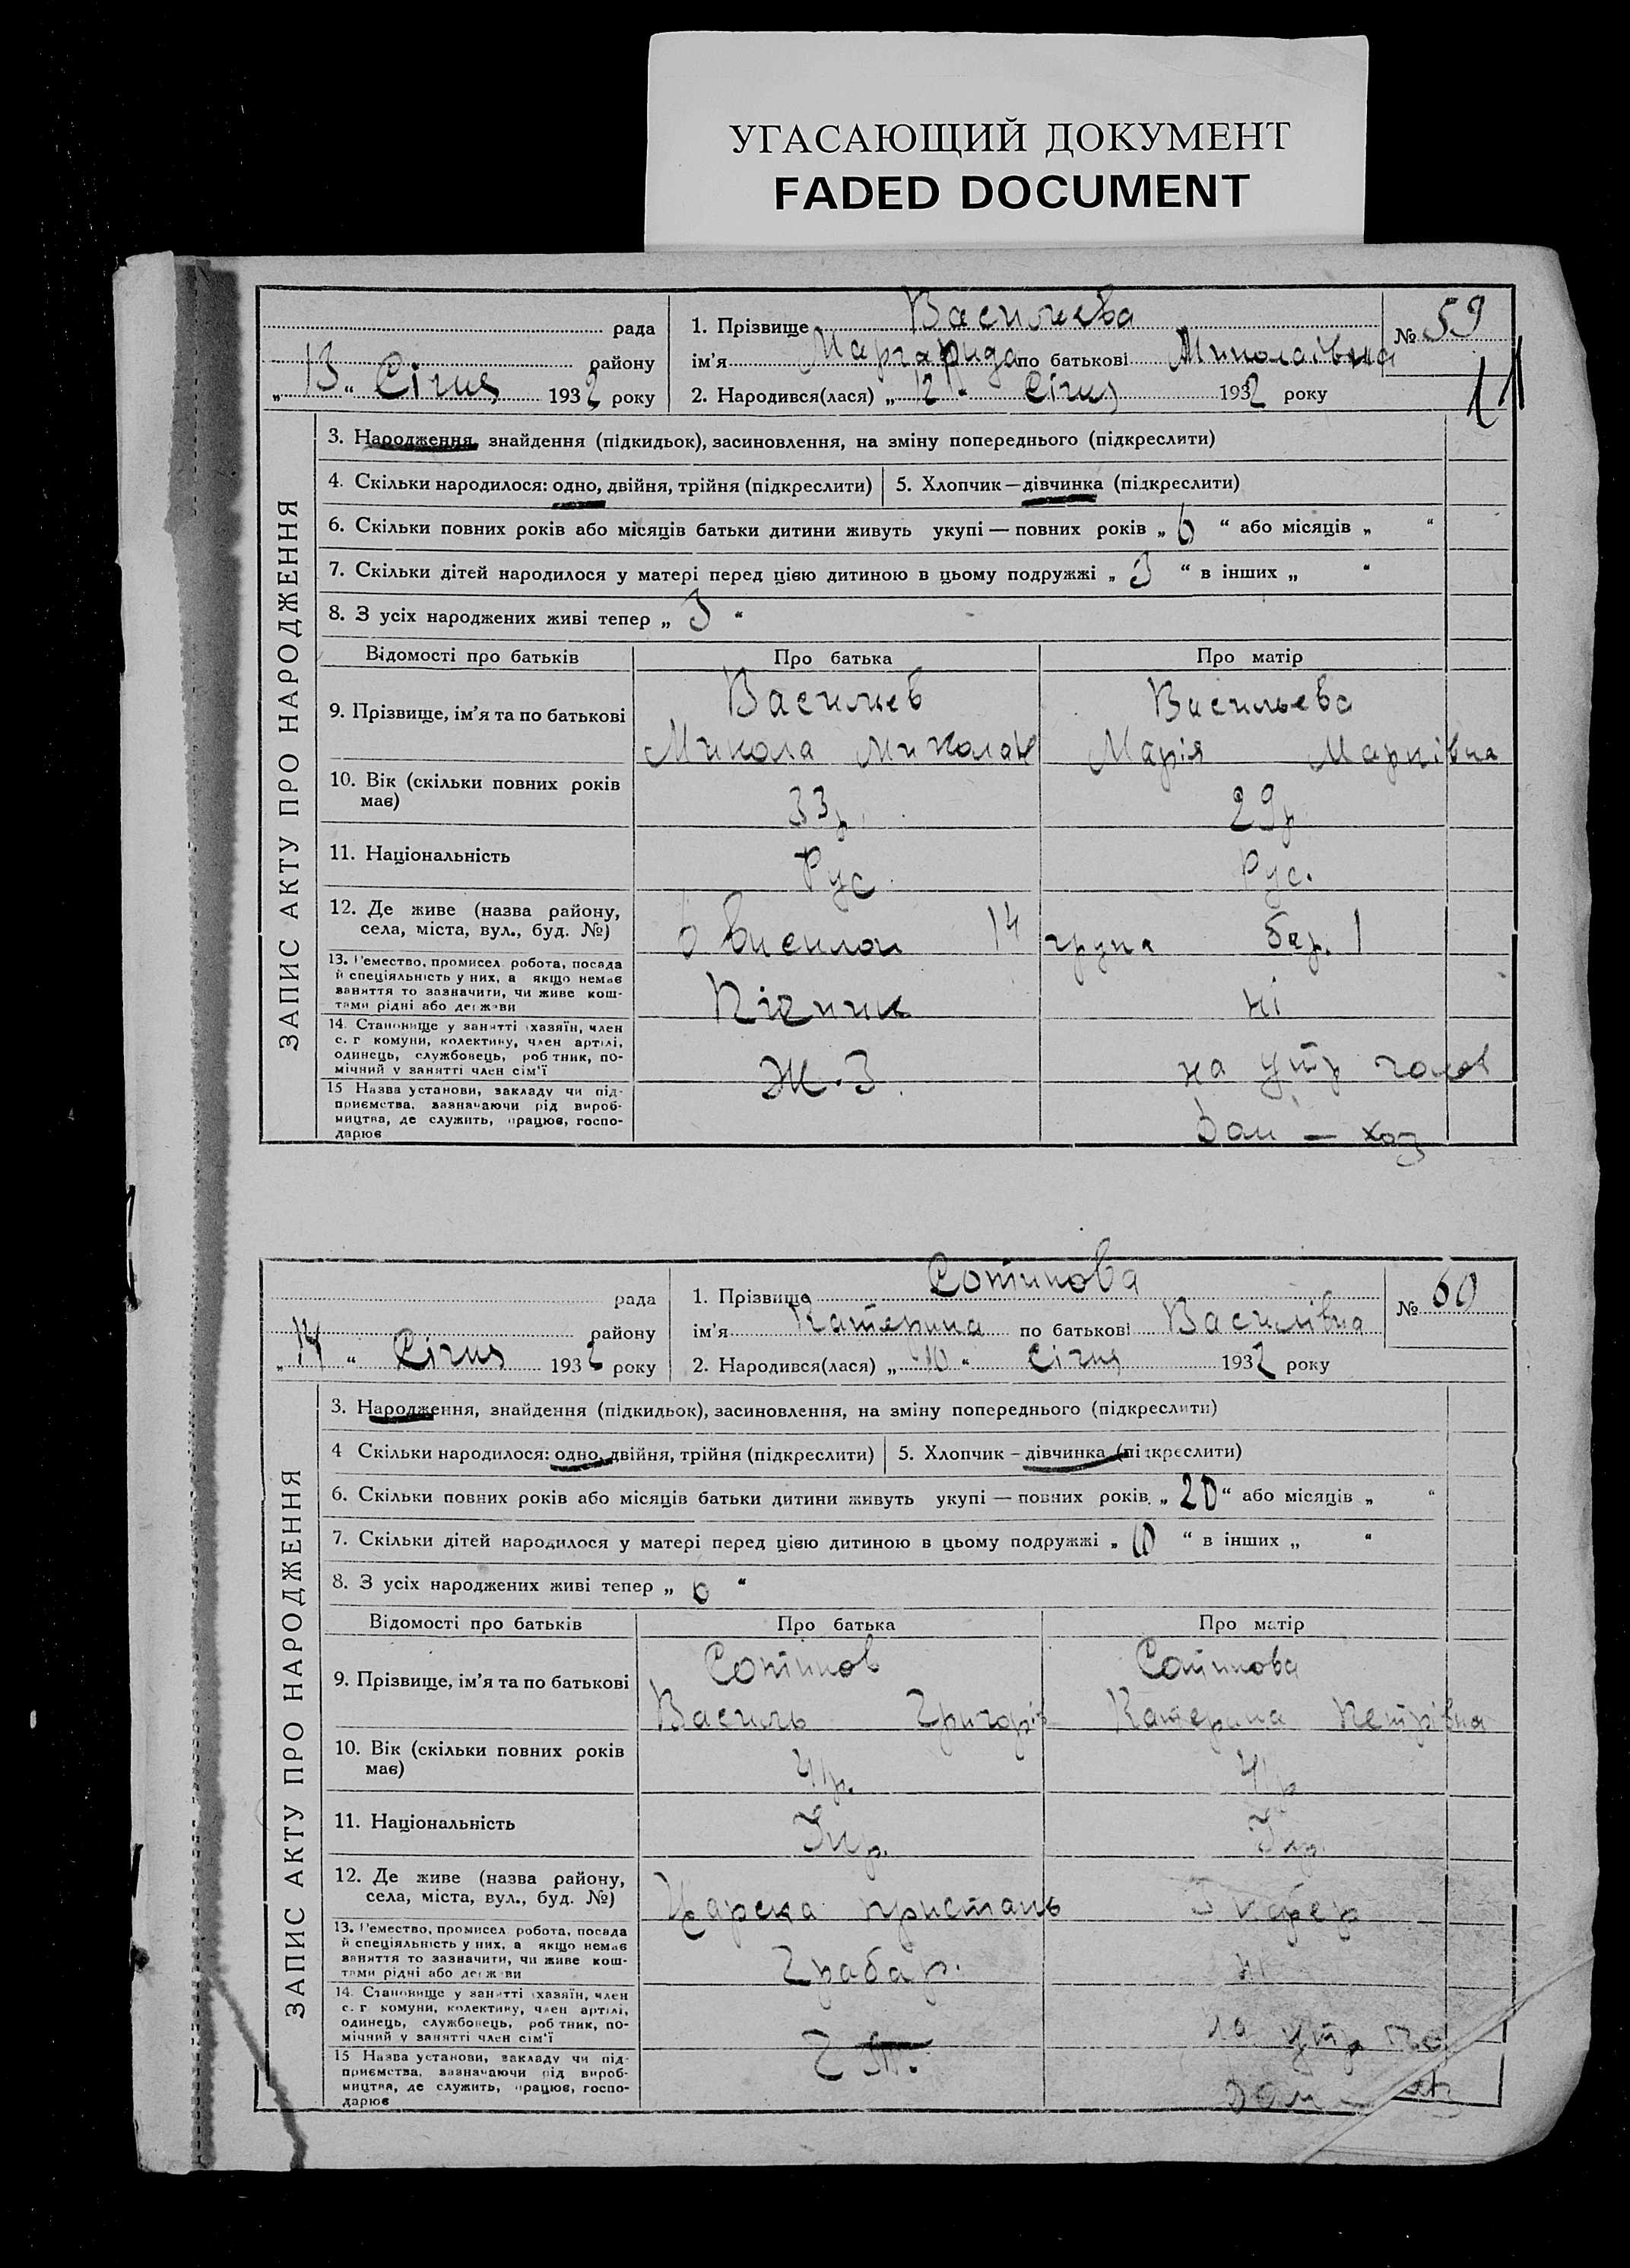 УГАСАЮЩИЙ ДОКУМЕНТ
FADED DOCUMENT
рада
району
„ 13 “ Січня 1932 року
1. Прізвище Васильева
ім’я Маргарида по батькові Миколаівна
2. Народився(лася) „ 12 “ Січня 1932 року
№ 59
ЗАПИС АКТУ ПРО НАРОДЖЕННЯ
3. Народження, знайдення (підкидьок), засиновлення, на зміну попереднього (підкреслити)
4. Скільки народилося: одно, двійня, трійня (підкреслити)
5. Хлопчик — дівчинка (підкреслити)
6. Скільки повних років або місяців батьки дитини живуть укупі — повних років „ 6 “ або місяців „ “
7. Скільки дітей народилося у матері перед цією дитиною в цьому подружжі „ 3 “ в інших „ “
8. З усіх народжених живі тепер „ 3 “
Відомості про батьків
Про батька
Про матір
9. Прізвище, ім’я та по батькові
Васильев
Микола Миколаів
Васильева
Марія Марківна
10. Вік (скільки повних років
має)
33р.
29р
11. Національність
Рус.
Рус.
12. Де живе (назва району,
села, міста, вул., буд. №)
14 група бар. 1
13. Ремество, промисел робота, посада
й спеціяльність у них, а якщо немає
заняття то зазначити, чи живе кош-
тами рідні або держави
ні
14. Становище у занятті (хазяїн, член
с. г комуни, колективу, член артілі,
одинець, службовець, робітник, по-
мічний у занятті член сім’ї
Ж.З.
на утр чолов
15 Назва установи, закладу чи під-
приємства, зазначаючи рід вироб-
ництва, де служить, працює, госпо-
дарює
Дом — хоз
рада
району
„ 14 “ Січня 1932 року
1. Прізвище Сотникова
ім’я Катерина по батькові Василівна
2. Народився(лася) „ 10 “ Січня 1932 року
№ 60
ЗАПИС АКТУ ПРО НАРОДЖЕННЯ
3. Народження, знайдення (підкидьок), засиновлення, на зміну попереднього (підкреслити)
4 Скільки народилося: одно, двійня, трійня (підкреслити)
5. Хлопчик – дівчинка (підкреслити)
6. Скільки повних років або місяців батьки дитини живуть укупі — повних років „ 20 “ або місяців „ “
7. Скільки дітей народилося у матері перед цією дитиною в цьому подружжі „ 10 “ в інших „ “
8. З усіх народжених живі тепер „ 6 “
Відомості про батьків
Про батька
Про матір
9. Прізвище, ім’я та по батькові
Сотников
Василь Григорів
Сотникова
Катерина Петрівна
10. Вік (скільки повних років
має)
41р.
41р
11. Національність
Укр.
Укр.
12. Де живе (назва району,
села, міста, вул., буд. №)
Царска пристань
13. Ремество, промисел робота, посада
й спеціяльність у них, а якщо немає
заняття то зазначити, чи живе кош-
тами рідні або держави
Грабар.
ні
14. Становище у занятті (хазяїн, член
с. г комуни, колективу, член артілі,
одинець, службовець, робітник, по-
мічний у занятті член сім’ї
на утр
15 Назва установи, закладу чи під-
приємства, зазначаючи рід вироб-
ництва, де служить, працює, госпо-
дарює
Дом — хоз